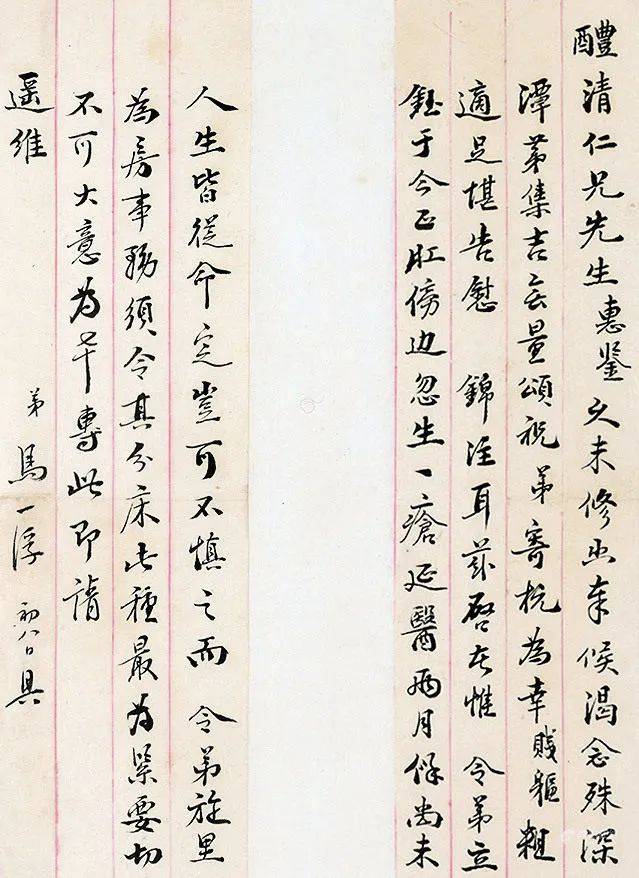 醴清仁兄先生惠鑒久未修出奉候渴念殊深
潭第集吉無量頌祝弟寄杭為幸賤軀粗
適足堪告慰錦注耳茲啓者惟令弟立
鈺于今正肛傍边忽生一瘡延醫兩月餘尚未
人生皆從命定豈可不慎之而令弟旋里
為房事務須令其分床此種最為緊要切
不可大意為千專此即請
遥維
弟馬一浮初八日具